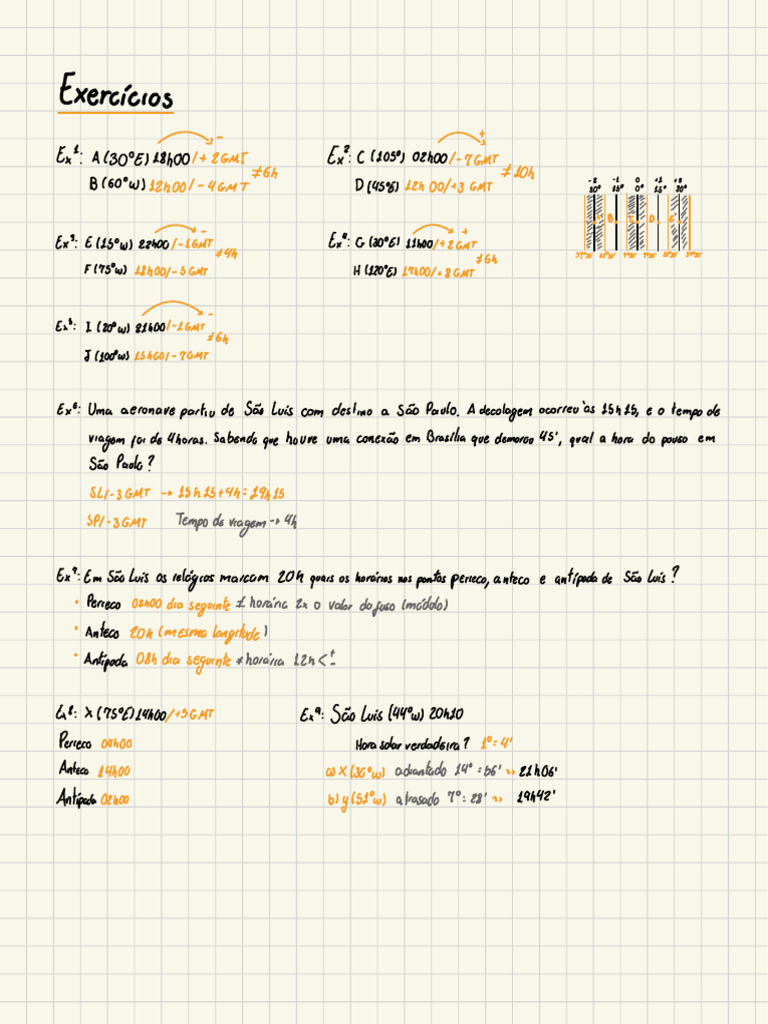 Exercícios
Ex¹: A (30°E) 18h00/+2GMT
B (60°W) 12h00/-4GMT
≠6h
-
Ex²: C (105°) 02h00/-7GMT
D (45°E) 12h00/+3 GMT
≠10h
+
-2 -1 0 +1 +2
30° 15° 0° 15° 30°
Ex³: E (15°W) 22h00/-1GMT
F (75°W) 18h00/-5GMT
≠4h
-
Ex⁴: G (30°E) 11h00/+2GMT
H (120°E) 17h00/+8GMT
≠6h
+
Ex⁵: I (20°W) 21h00/-1GMT
J (100°W) 15h00/-7GMT
≠6h
-
Ex⁶: Uma aeronave partiu de São Luis com destino a São Paulo. A decolagem ocorreu às 15h15, e o tempo de
viagem foi de 4horas. Sabendo que houve uma conexão em Brasília que demorou 45', qual a hora do pouso em
São Paulo?
SL/-3GMT -> 15h15+4h=19h15
SP/-3GMT Tempo de viagem -> 4h
Ex⁷: Em São Luis os relógios marcam 20h quais os horários nos pontos perieco, anteco e antípoda de São Luis?
• Perieco 02h00 dia seguinte ≠ horária 2x o valor do fuso (módulo)
• Anteco 20h (mesma longitude)
• Antípoda 08h dia seguinte ≠horária 12h < + -
Ex⁸: X (75°E) 14h00/+5GMT
Perieco 04h00
Anteco 14h00
Antípoda 02h00
Ex⁹: São Luis (44°W) 20h10
Hora solar verdadeira? 1°=4'
a) X (30°W) adiantado 14°=56' -> 21h06'
b) y (51°W) atrasado 7°=28' -> 19h42'